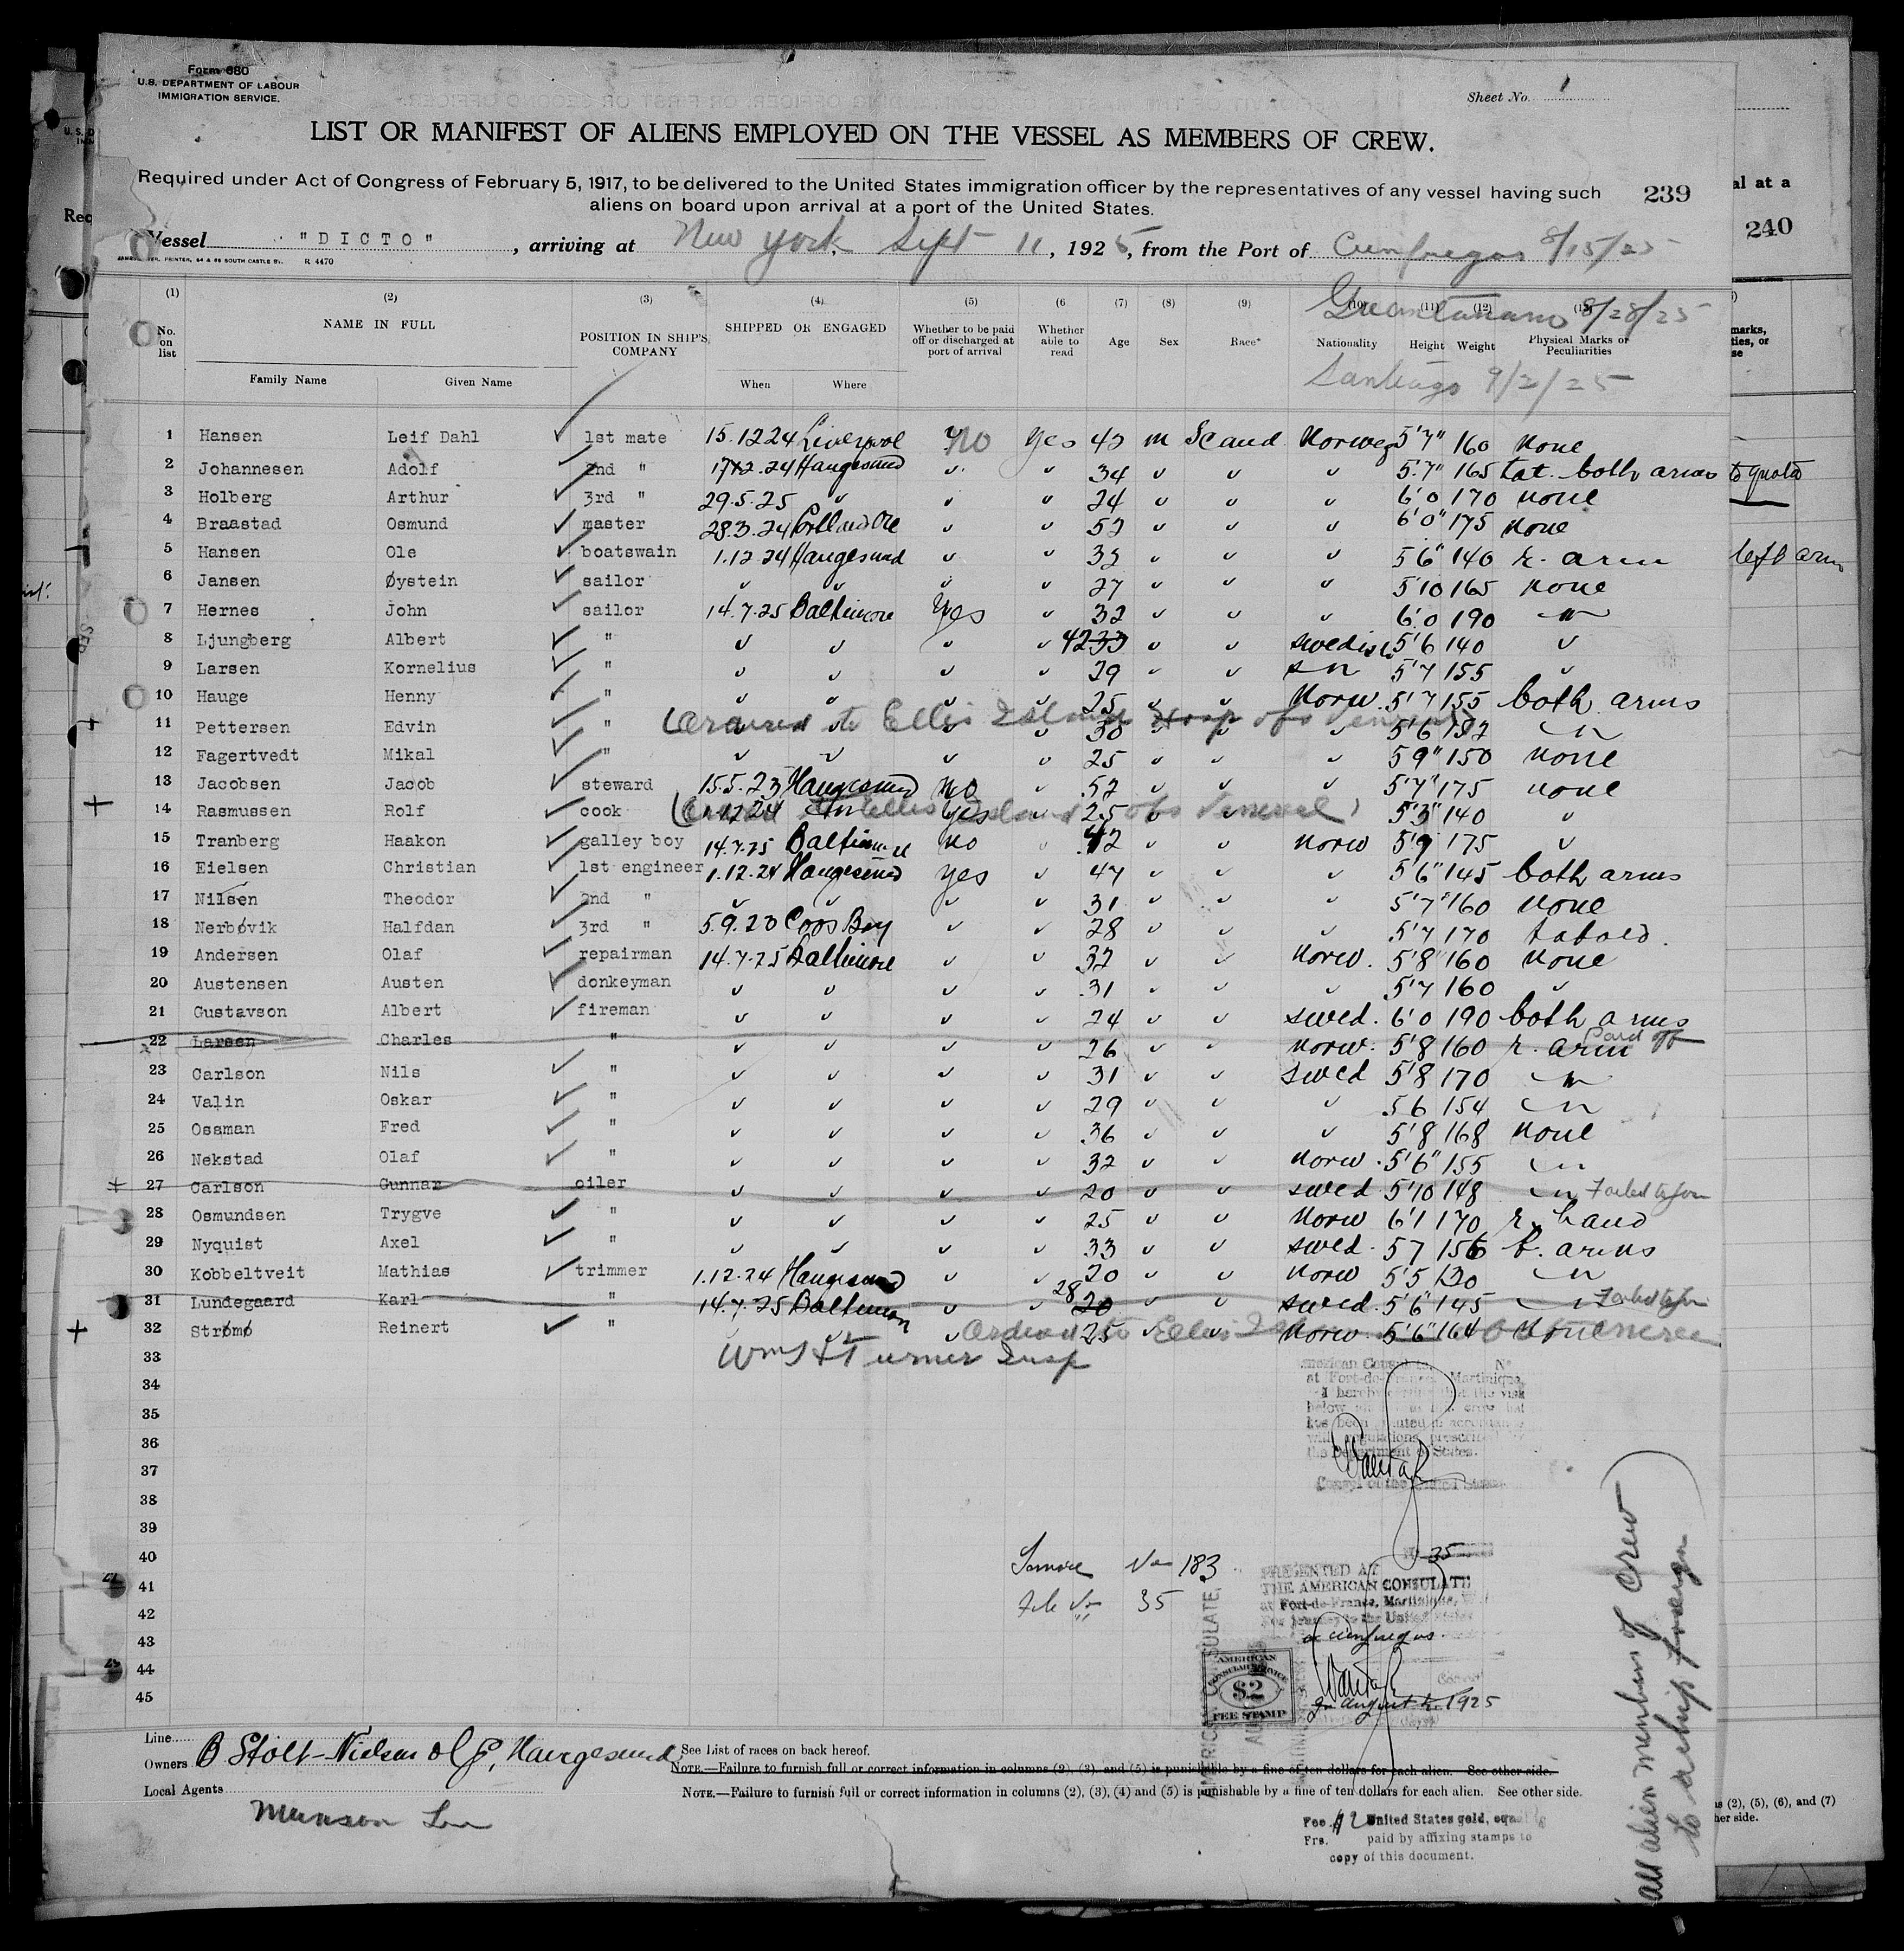 Form 680
U.S. DEPARTMENT OF LABOUR
IMMIGRATION SERVICE.
Sheet No. 1
LIST OR MANIFEST OF ALIENS EMPLOYED ON THE VESSEL AS MEMBERS OF CREW.
Required under Act of Congress of February 5, 1917, to be delivered to the United States immigration officer by the representatives of any vessel having such
aliens on board upon arrival at a port of the United States.
239
al at a
240
Vessel "DICTO", arriving at New York. Sept 11, 1925, from the Port of Cienfuegos 8/15/25
R 4470
Guantanamo 8/28/25
Santiago 9/2/25
(1) (2) (3) (4) (5) (6 (7) (8) (9) (10) (11) (12) (13)
No. on list
NAME IN FULL
Family Name Given Name
POSITION IN SHIP'S COMPANY
SHIPPED OR ENGAGED
When Where
Whether to be paid off or discharged at port of arrival
Whether able to read
Age Sex Race* Nationality Height Weight
Physical Marks or Peculiarities
1 Hansen Leif Dahl 1st mate 15.12 24 Liverpool No Yes 42 m Scand Norweg 5'7" 160 none
2 Johannesen Adolf 2nd " 17 12.24 Haugesund 34 5'7" 165 tat. both arms
3 Holberg Arthur 3rd " 29.5.25 24 6'0 170 none
4 Braastad Osmund master 28.3.24 Portland Ore 52 6'0" 175 none
5 Hansen Ole boatswain 1.12 24 Haugesund 32 5'6" 140 r. arm left arm
6 Jansen Øystein sailor 27 5'10 165 none
7 Hernes John sailor 14.7.25 Baltimore Yes 32 6'0 190 "
8 Ljungberg Albert " 42 33 swedish 5'6 140
9 Larsen Kornelius " 29 5'7 155
10 Hauge Henny " 25 Norw. 5'7 155 both arms
11 Pettersen Edvin " 30 5'6 182 "
to Ellis Island Hosp obs Venereal
12 Fagertvedt Mikal " 25 5 9" 150 none
13 Jacobsen Jacob steward 15.5.23 Haugesund No 52 5'7" 175 none
14 Rasmussen Rolf cook 1.12 24 Yes 25 5'3" 140
Ellis Island obs Venereal
15 Tranberg Haakon galley boy 14.7.25 Baltimore No 42 norw 5'9 175
16 Eielsen Christian 1st engineer 1.12.24 Haugesund yes 47 5'6" 145 both arms
17 Nilsen Theodor 2nd " 31 5'7" 160 none
18 Nerbøvik Halfdan 3rd " 5.9.23 Coos Bay 28 5'7 170 tatoed.
19 Andersen Olaf repairman 14.7.25 Baltimore 32 norw. 5'8" 160 none
20 Austensen Austen donkeyman 31 5'7 160
21 Gustavson Albert fireman 24 swed. 6'0 190 both arms
22 Larsen Charles " 26 norw. 5'8 160 r. arm Paid off
23 Carlson Nils " 31 swed 5'8 170 "
24 Valin Oskar " 29 5 6 154 "
25 Osaman Fred " 36 5'8 168 none
26 Nekstad Olaf " 32 norw. 5'6" 155 "
27 Carlson Gunnar oiler 20 swed 5'10 148 " Failed to join
28 Osmundsen Trygve " 25 Norw 6'1 170 r. hand
29 Nyquist Axel " 33 swed. 5 7 156 b. arms
30 Kobbeltveit Mathias trimmer 1.12.24 Haugesund 20 norw 5'5 130 "
31 Lundegaard Karl " 14.7.25 Baltimore 28 20 swed. 5'6" 145 " Failed to join
32 Strømø Reinert " 25 Norw. 5'6" 164 none
Ordered to Ellis
33
Turner Insp
34
35
36
37
38
39
40
41
42
43
44
45
American Consul
at Fort-de-France, Martinique,
the Department of States.
Service No 183
File No 35
No 35
PRESENTED AT
THE AMERICAN CONSULATE
at Fort-de-France, Martinique,
For journey to the United States
a Cienfuegos.
August 1925
AMERICAN
CONSULAR SERVICE
$2
FEE STAMP
all alien members of crew
to reship foreign
Line
Owners B Stolt-Nielsen Haugesund
Local Agents
Munson Line
See List of races on back hereof.
NOTE.—Failure to furnish full or correct information in columns (2), (3), and (5) is punishable by a fine of ten dollars for each alien. See other side.
NOTE.—Failure to furnish full or correct information in columns (2), (3), (4) and (5) is punishable by a fine of ten dollars for each alien. See other side.
s (2), (5), (6), and (7)
her side.
Fee $2 United States gold, equal to
Frs. paid by affixing stamps to
copy of this document.